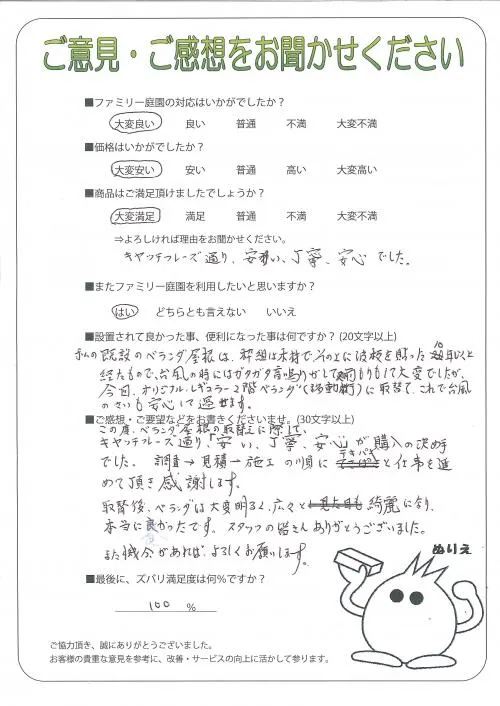 ご意見・ご感想をお聞かせください
■ファミリー庭園の対応はいかがでしたか？
大変良い 良い 普通 不満 大変不満
■価格はいかがでしたか？
大変安い 安い 普通 高い 大変高い
■商品はご満足頂けましたでしょうか？
大変満足 満足 普通 不満 大変不満
⇒よろしければ理由をお聞かせください。
キャッチフレーズ通り、安い、丁寧、安心でした。
■またファミリー庭園を利用したいと思いますか？
はい どちらとも言えない いいえ
■設置されて良かった事、便利になった事は何ですか？(20文字以上)
私の既設のベランダ屋根は、枠組は木材で、その上に波板を貼った 年以上
経たもので、台風の時にはガタガタ音鳴りがして もりもして大変でしたが、
今回、オリジナルレギュラー2階ベランダ に取替て、これで台風
のさいも安心して過せます。
■ご感想・ご要望などをお書きくださいませ。(30文字以上)
この度、ベランダ屋根の取替えに際して、
キャッチフレーズ通り、「安い、丁寧、安心」が購入の決め手
でした。調査→見積→施工の順にテキパキと仕事を進
めて頂き感謝します。
取替後、ベランダは大変明るく、広々と 綺麗になり、
本当に良かったです。スタッフの皆さんありがとうございました。
また機会があれば、よろしくお願いします。
ぬりえ
■最後に、ズバリ満足度は何％ですか？
100 %
ご協力頂き、誠にありがとうございました。
お客様の貴重な意見を参考に、改善・サービスの向上に活かして参ります。